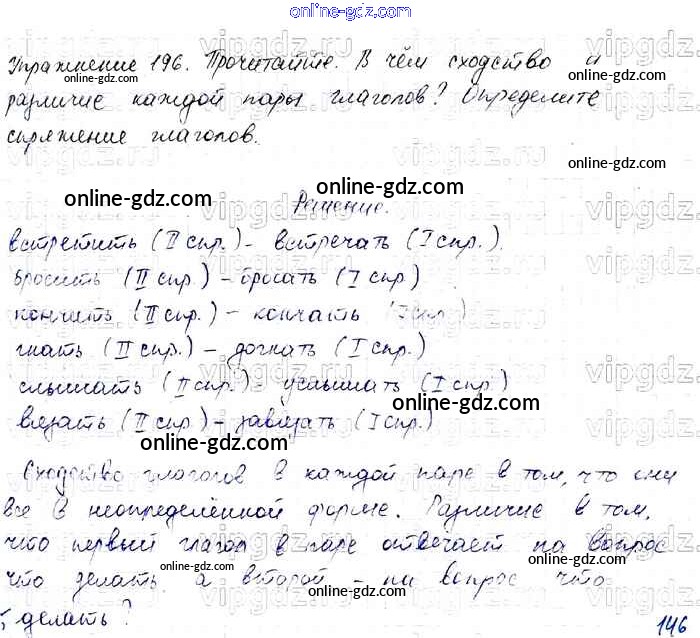 online-gdz.com
Упражнение 196. Прочитайте. В чём сходство и
различие каждой пары глаголов? Определите
спряжение глаголов.
online-gdz.com
online-gdz.com
online-gdz.com
Решение.
встретить (II спр.) - встречать (I спр.)
бросить (II спр) - бросать (I спр)
online-gdz.com
online-gdz.com
кончить (II спр.) - кончать (I спр)
гнать (II спр.) - догнать (I спр.)
слышать (II спр.) - услышать (I спр)
online-gdz.com
вязать (II спр) - завязать (I спр)
online-gdz.com
Сходство глаголов в каждой паре в том, что они
все в неопределённой форме. Различие в том,
online-gdz.com
online-gdz.com
что первый глагол в паре отвечает на вопрос
что делать, а второй - на вопрос что
online-gdz.com
online-gdz.com
делать?
146
online-gdz.com